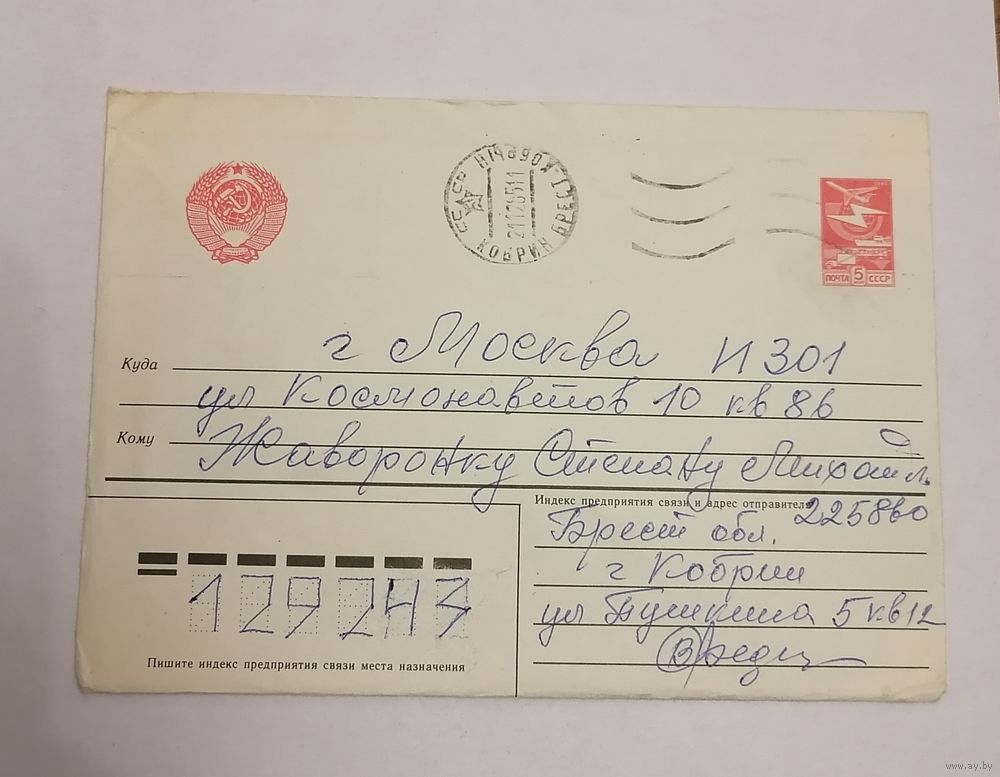 СССР КОБРИН БРЕСТ. КОБРЫН
21128511
ПОЧТА 5 СССР
Куда г Москва И 301
ул Космонавтов 10 кв 86
Кому Жаворонку Степану Михайл
Индекс предприятия связи и адрес отправителя
225860
Брест обл.
г Кобрин
ул Пушкина 5 кв 12
129243
Пишите индекс предприятия связи места назначения
www.ay.by